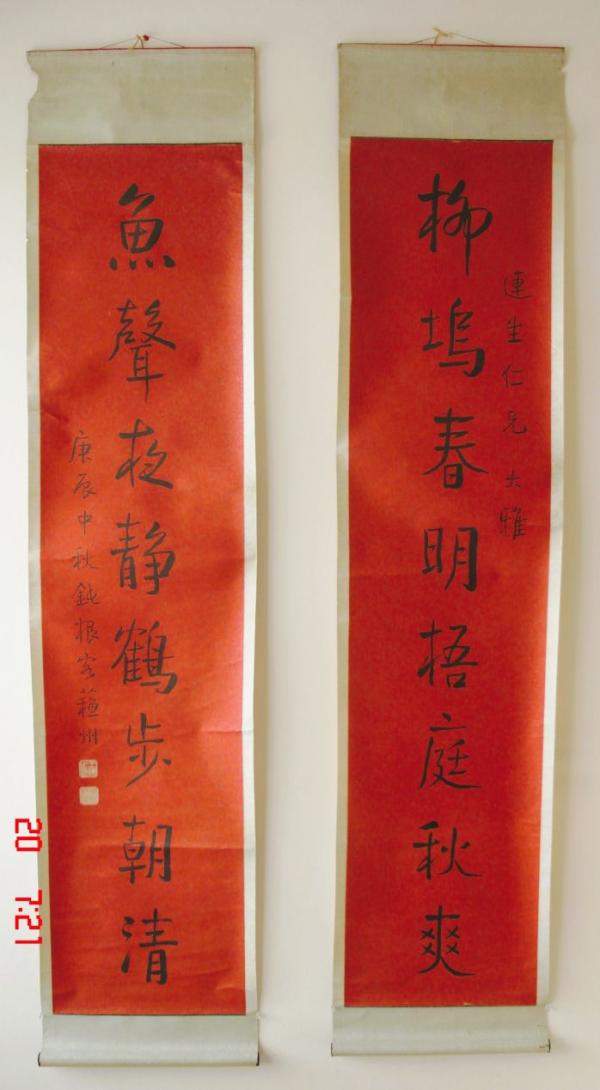 柳塢春明梧庭秋爽
連生仁兄大雅
魚聲夜静鶴步朝清
庚辰中秋鈍根客蘓州
20 7:21